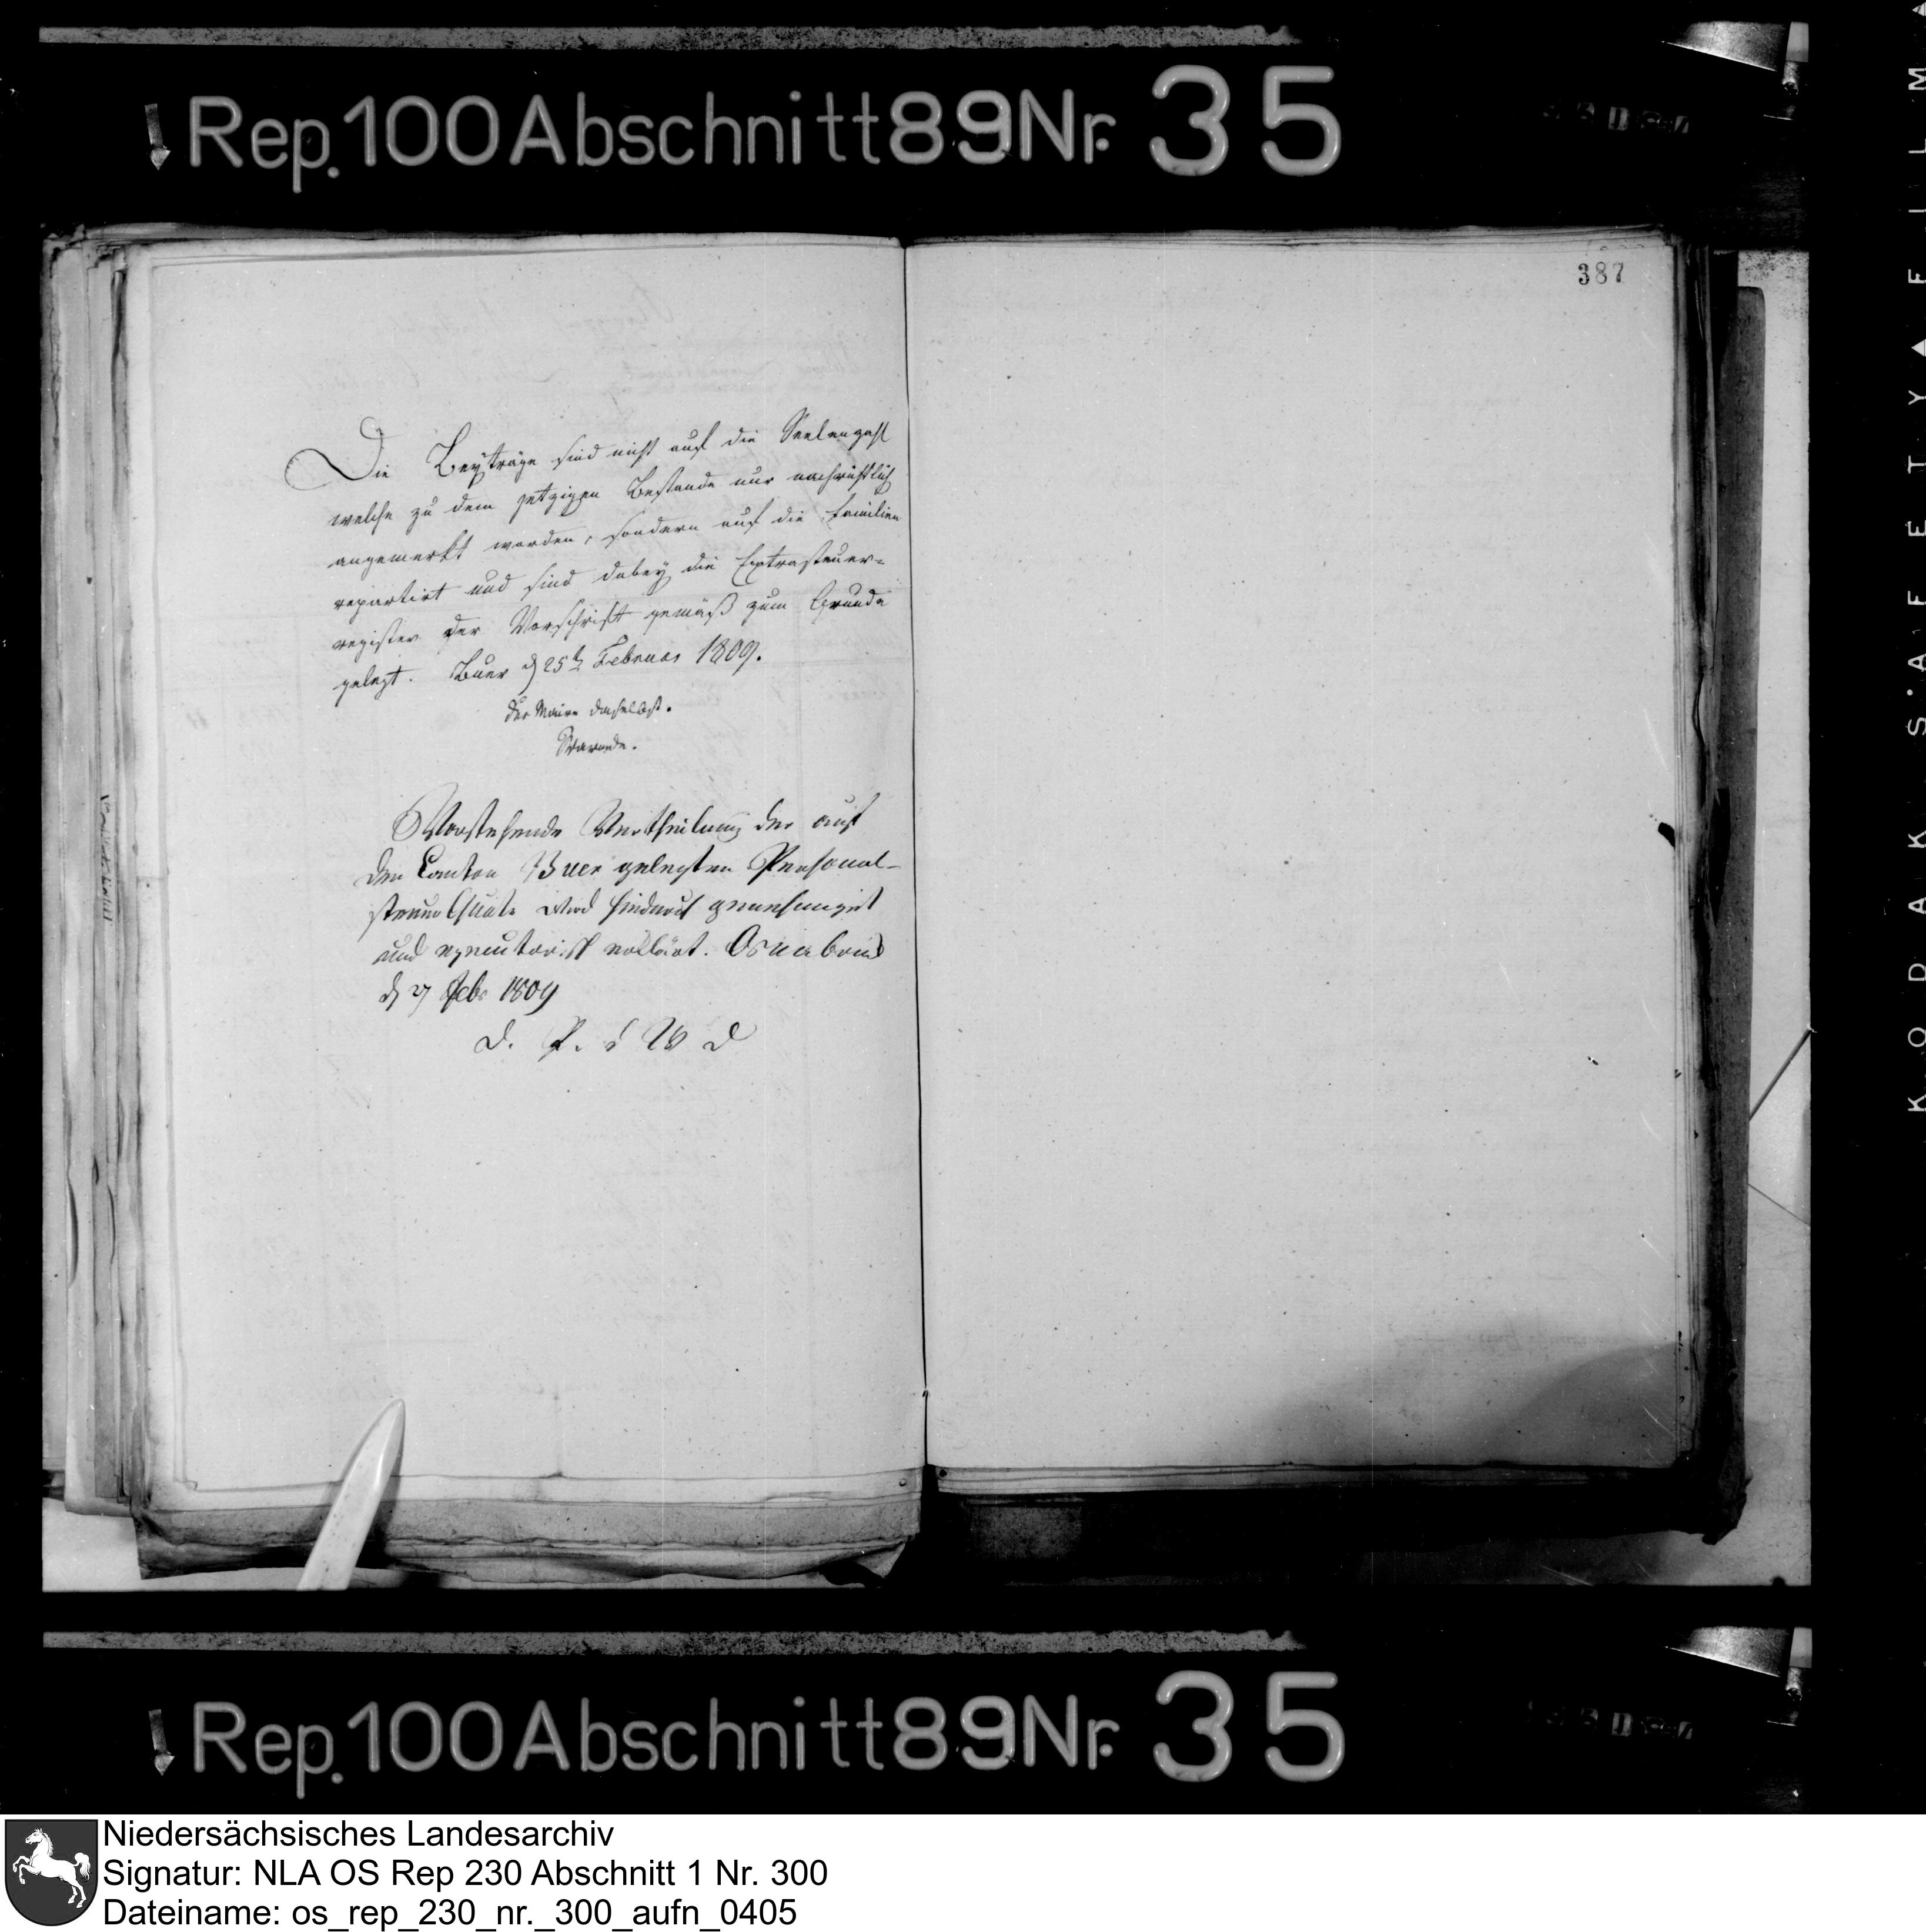 Rep. 100 Abschnitt 89 Nr. 35
387
Die Beyträge sind nicht auf die Seelenzahl
welche zu dem jetzigen Bestande nur nachrichtlich
angemerkt worden, sondern auf die Familien
repartirt und sind dabey die Extrasteuer-
register der Vorschrift gemäß zum Grunde
gelegt. Buer d 25t Februar 1809.
der Maire daselbst.
Vorstehende Vertheilung der auf
den Canton Buer gelegten Personal-
steuer Quote wird hindurch genehmiget
und executorisch erklärt. Osnabrück
d 27 Feb 1809
D. P. d W D
KODAK SAFETY FILM
Rep. 100 Abschnitt 89 Nr. 35
Niedersächsisches Landesarchiv
Signatur: NLA OS Rep 230 Abschnitt 1 Nr. 300
Dateiname: os_rep_230_nr._300_aufn_0405